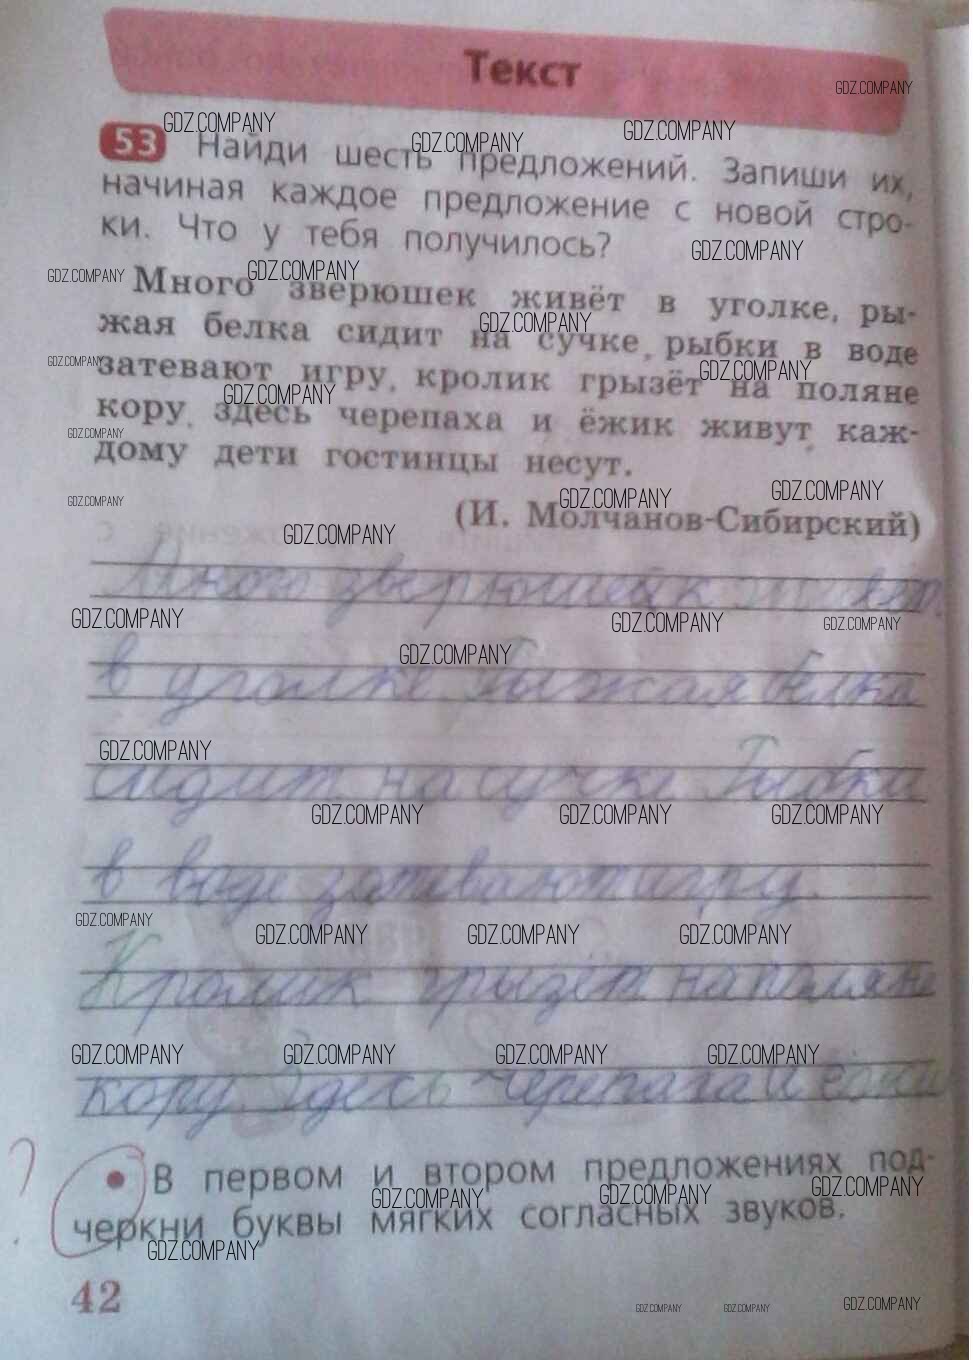 Текст
53 Найди шесть предложений. Запиши их,
начиная каждое предложение с новой стро-
ки. Что у тебя получилось?
Много зверюшек живёт в уголке, ры-
жая белка сидит на сучке, рыбки в воде
затевают игру, кролик грызёт на поляне
кору, здесь черепаха и ёжик живут, каж-
дому дети гостинцы несут.
(И. Молчанов-Сибирский)
Много зверюшек живёт
в уголке Рыжая белка
сидит на сучке Рыбки
в воде затевают игру.
Кролик грызёт на поляне
кору. Здесь черепаха и ёжик
? • В первом и втором предложениях под-
черкни буквы мягких согласных звуков.
42
GDZ.COMPANY